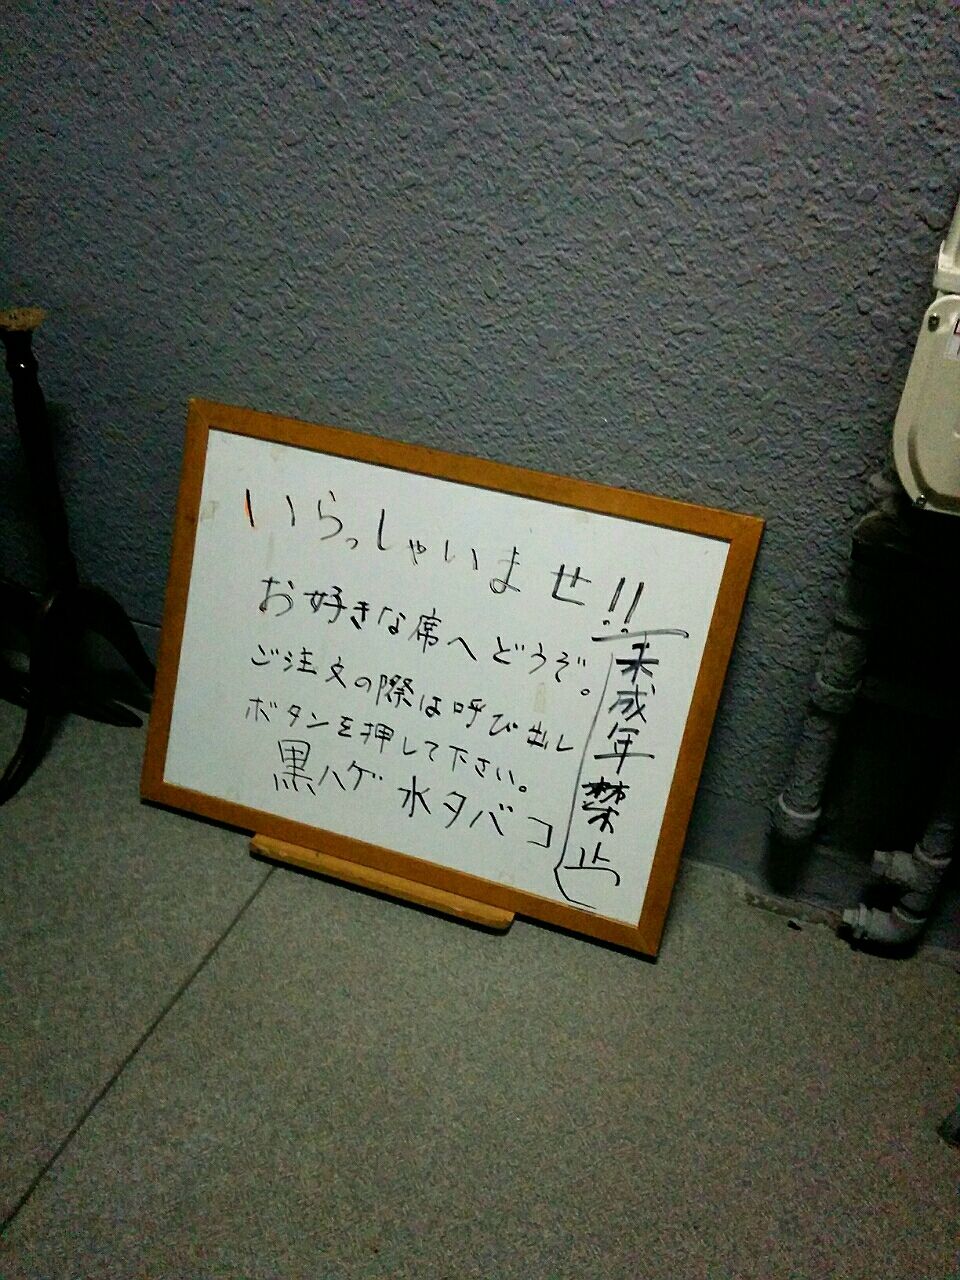 いらっしゃいませ!!
お好きな席へどうぞ。
ご注文の際は呼び出し
ボタンを押して下さい。
黒ハゲ 水タバコ
未成年禁止